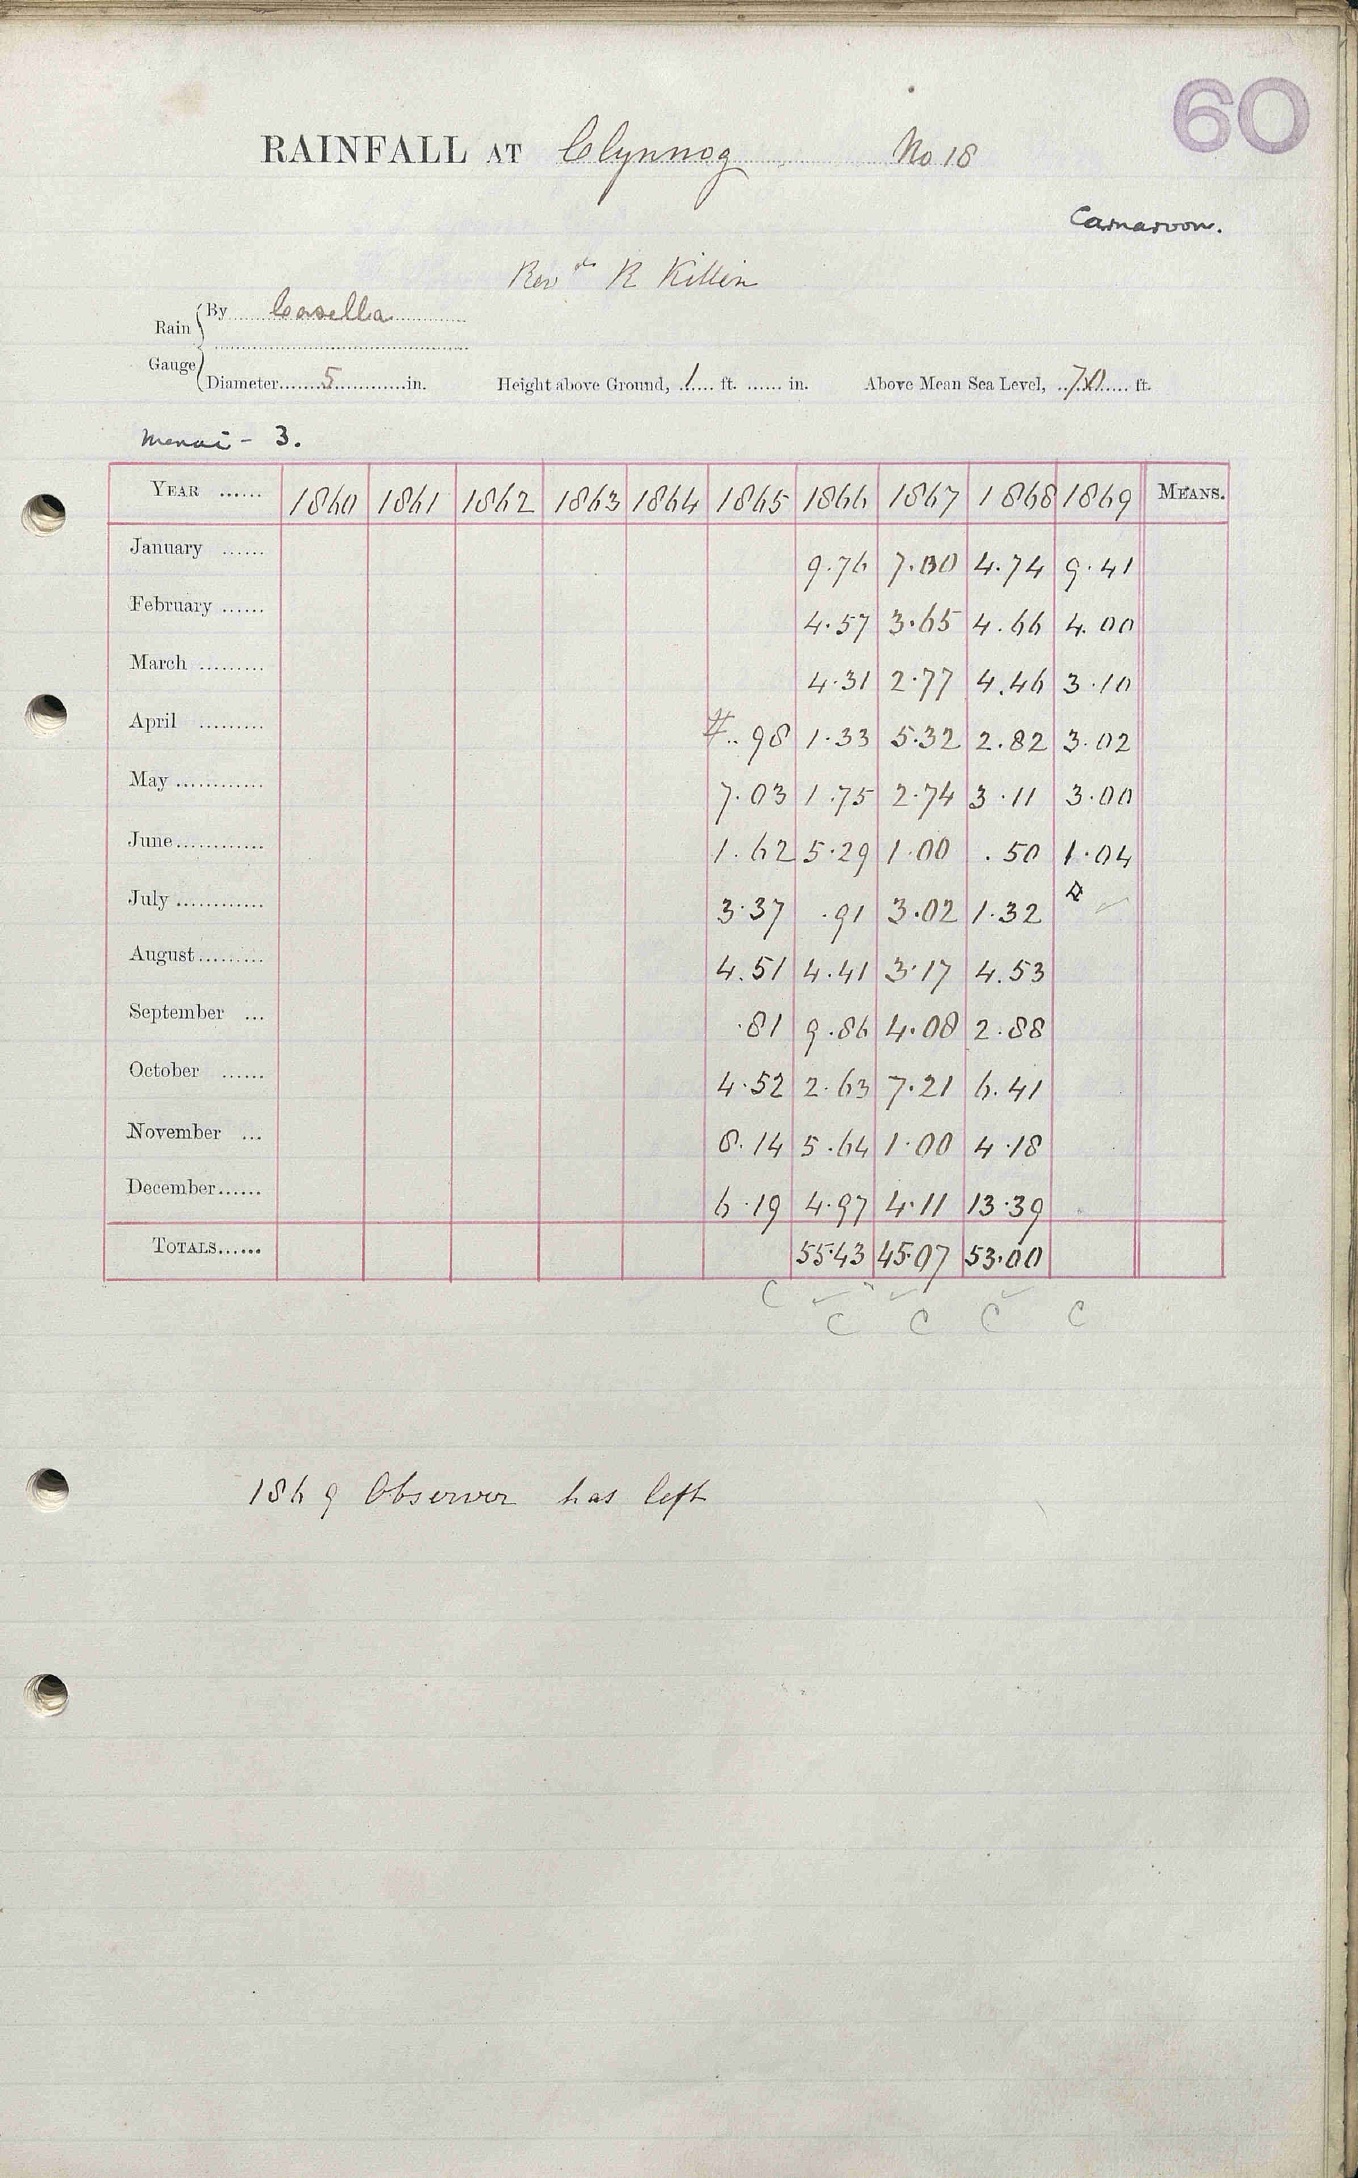 60
RAINFALL AT Clynnog No 18
Carnarvon.
Revd R Killin
Rain Gauge
By Casella
Diameter.......5............in. Height above Ground, 1 ft. ...... in. Above Mean Sea Level, 70 ft.
Menai - 3.
YEAR ...... 1860 1861 1862 1863 1864 1865 1866 1867 1868 1869 MEANS.
January ...... 9.76 7.00 4.74 9.41
February ...... 4.57 3.65 4.66 4.00
March ......... 4.31 2.77 4.46 3.10
April ......... #..98 1.33 5.32 2.82 3.02
May ............ 7.03 1.75 2.74 3.11 3.00
June............ 1.62 5.29 1.00 .50 1.04
July ............ 3.37 .91 3.02 1.32
August......... 4.51 4.41 3.17 4.53
September ... .81 9.86 4.08 2.88
October ...... 4.52 2.63 7.21 6.41
November ... 8.14 5.64 1.00 4.18
December...... 6.19 4.97 4.11 13.39
TOTALS...... 55.43 45.07 53.00
C C C C C
1869 Observer has left